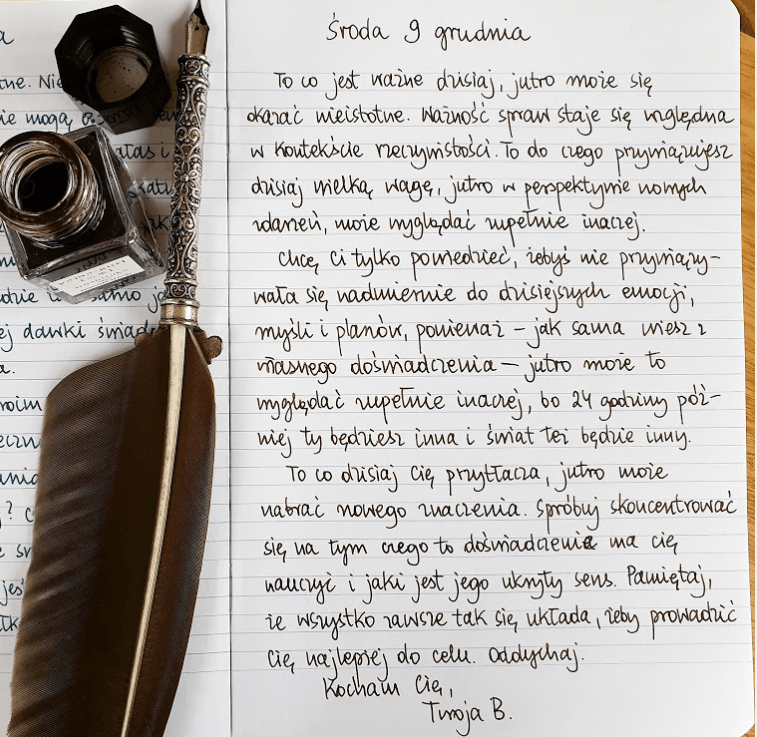 środa 9 grudnia
To co jest ważne dzisiaj, jutro może się
okazać nieistotne. Ważność spraw staje się względna
w kontekście rzeczywistości. To do czego przywiązujesz
dzisiaj wielką wagę, jutro w perspektywie nowych
zdarzeń, może wyglądać zupełnie inaczej.
Chcę Ci tylko powiedzieć, żebyś nie przywiązy-
wała się nadmiernie do dzisiejszych emocji,
myśli i planów, ponieważ – jak sama wiesz z
własnego doświadczenia – jutro może to
wyglądać zupełnie inaczej, bo 24 godziny póź-
niej ty będziesz inna i świat też będzie inny.
To co dzisiaj Cię przytłacza, jutro może
nabrać nowego znaczenia. Spróbuj skoncentrować
się na tym czego to doświadczenie ma cię
nauczyć i jaki jest jego ukryty sens. Pamiętaj,
że wszystko zawsze tak się układa, żeby prowadzić
cię najlepiej do celu. Oddychaj.
Kocham Cię,
Twoja B.